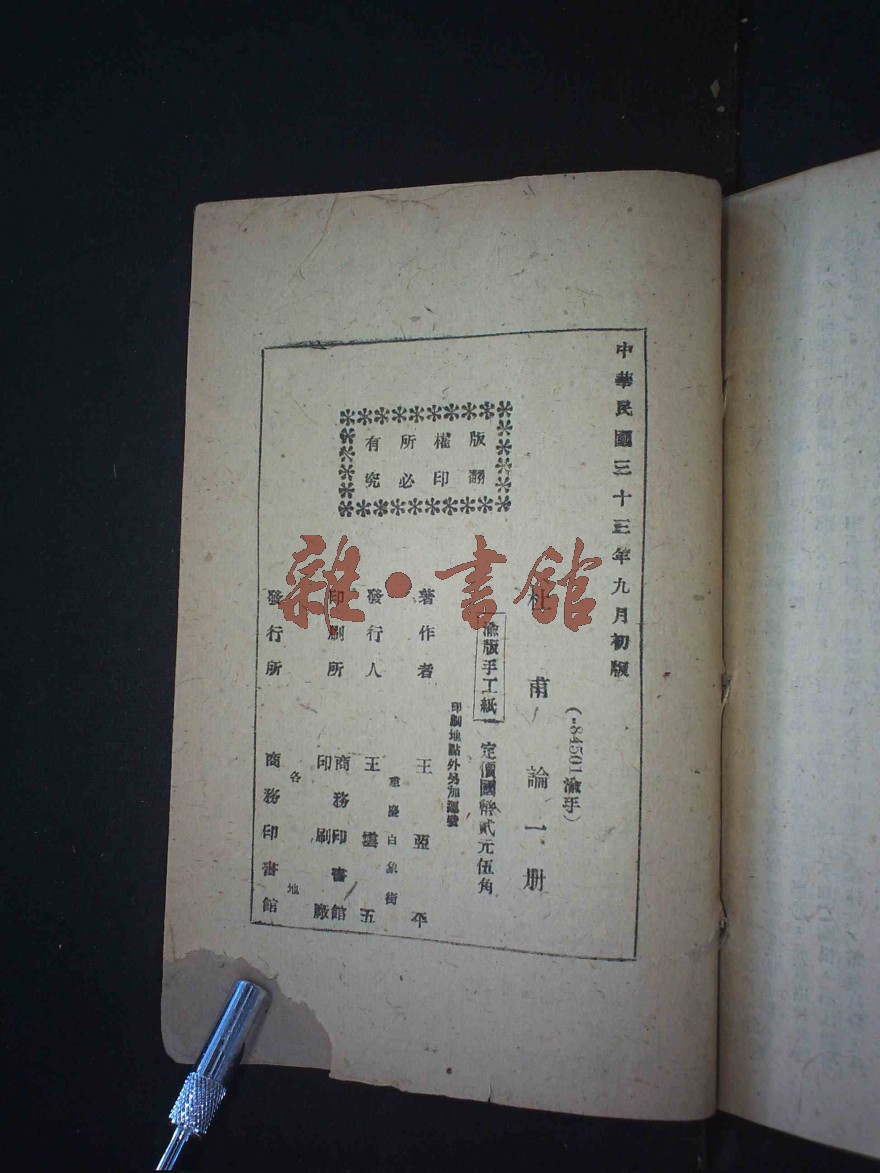 中華民國三十三年九月初版
(·84501渝手)
杜甫論一册
渝版手工紙
定價國幣貳元伍角
印刷地點外另加運費
著作者 王亞平
重慶白象街
發行人 王雲五
印刷所 商務印書館印刷廠
各地
發行所 商務印書館
版權所有
翻印必究
雜·書館